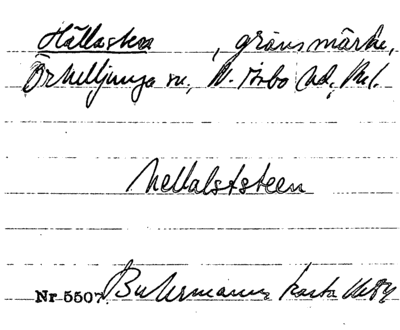 Hallasten, gränsmärke,
Örkelljunga sn, N. Åsbo hd,
hellalststeen
Nr 5507 Buhrmanns karta